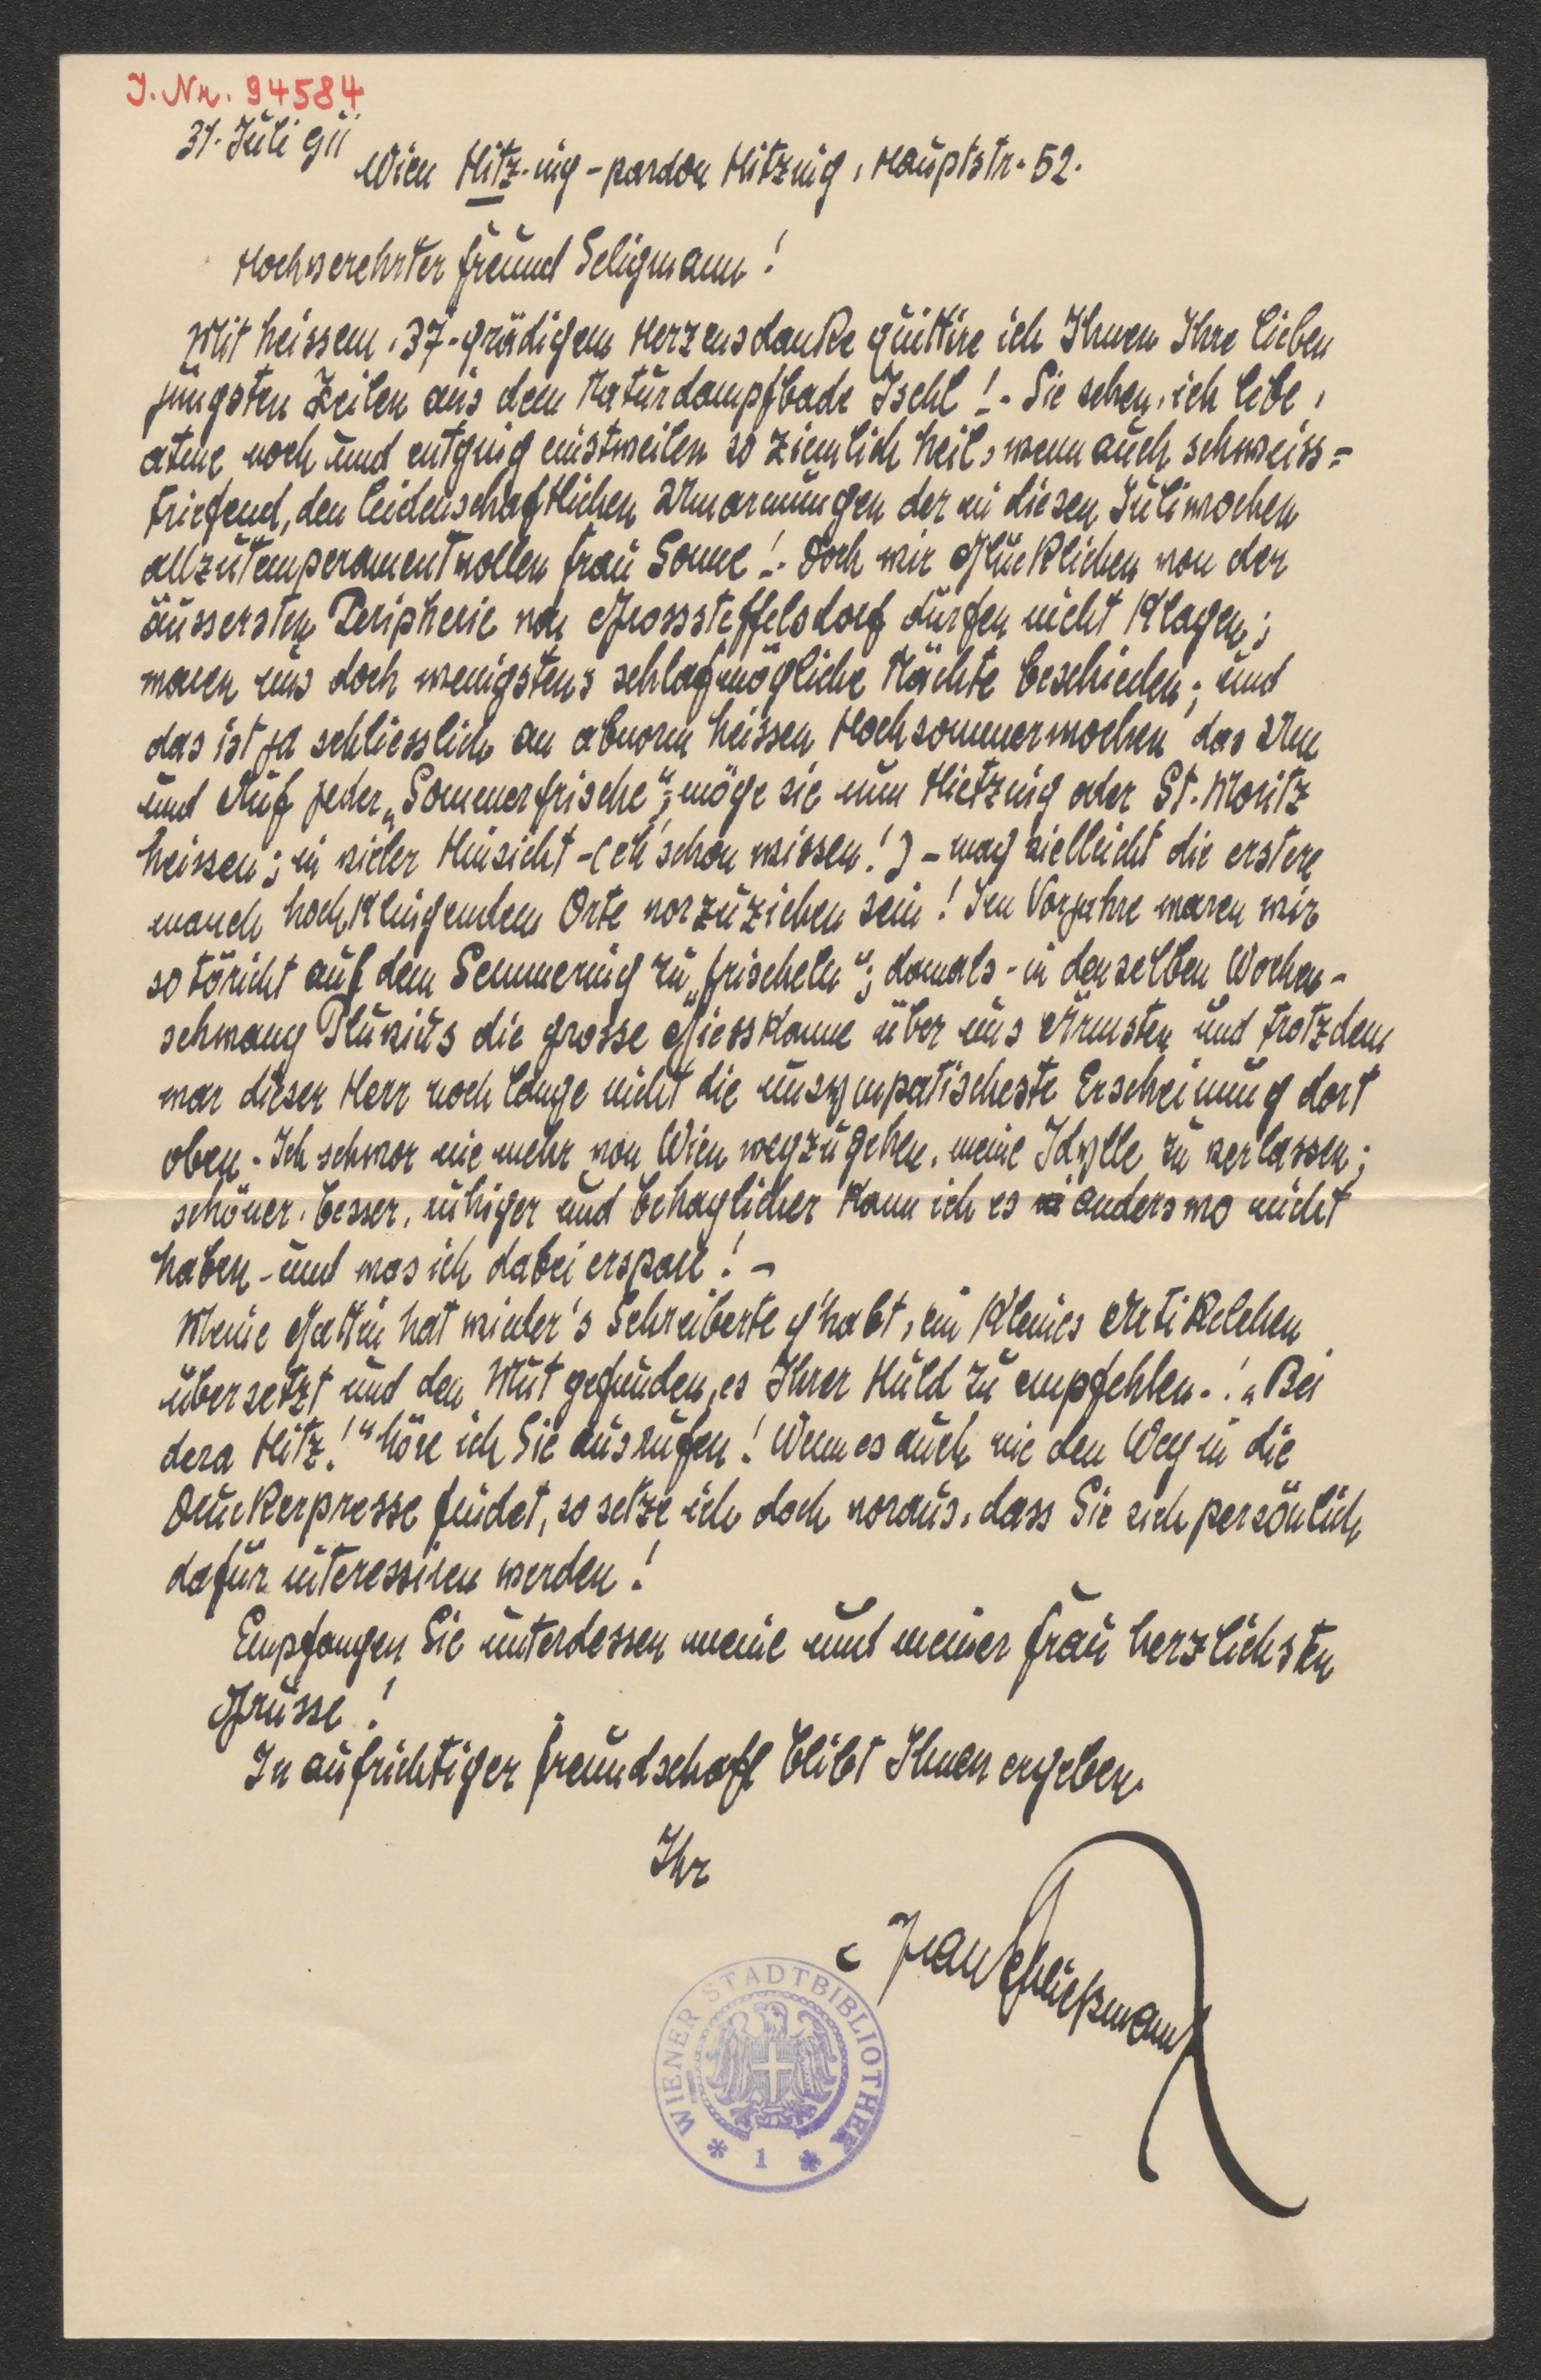 J. Nr. 94584
31. Juli 911
Wien Hitz-ing - pardon Hitzing, Hauptstr. 52.
Hochverehrter Freund Seligmann!
Mit heissem, 37-grädigem Herzensdanke quittire ich Ihnen Ihre lieben
jüngsten Zeilen aus dem Naturdampfbade Ischl!. Sie sehen, ich lebe,
atme noch und entging einstweilen so ziemlich heil, wenn auch schweiss=
triefend, den leidenschaftlichen Umarmungen der in diesen Juliwochen
allzutemperamentvollen Frau Sonne!. Doch wir Glücklichen von der
äussersten Peripherie von Grosssteffelsdorf dürfen nicht klagen;
waren uns doch wenigstens schlafmögliche Nächte beschieden; und
das ist ja schliesslich an abnorm heissen Hochsommerwochen das Um
und Auf jeder „Sommerfrische“; möge sie nun Hietzing oder St. Moritz
heissen; in vieler Hinsicht - (eh' schon wissen!) - mag vielleicht die erstere
manch hochklingendem Orte vorzuziehen sein! Im Vorjahre waren wir
so töricht auf dem Semmering zu „frischeln“; damals - in denselben Wochen -
schwang Pluvius die grosse Giesskanne über uns Ärmsten und trotzdem
war dieser Herr noch lange nicht die unsympatischeste Erscheinung dort
oben. Ich schwor nie mehr von Wien wegzugehen, meine Idylle zu verlassen;
schöner, besser, ruhiger und behaglicher kann ich es anderswo nicht
haben - und was ich dabei erspare! -
Meine Gattin hat wieder's Schreiberte g'habt, ein kleines Artikelchen
übersetzt und den Mut gefunden, es Ihrer Huld zu empfehlen.! „Bei
dera Hitz!“ höre ich Sie ausrufen! Wenn es auch nie den Weg in die
Druckerpresse findet, so setze ich doch voraus, dass Sie sich persönlich
dafür interessiren werden!
Empfangen Sie unterdessen meine und meiner Frau herzlichsten
Grüsse!
In aufrichtiger Freundschaft bleibt Ihnen ergeben
Ihr
Hans Schließmann
WIENER STADTBIBLIOTHEK
* 1 *